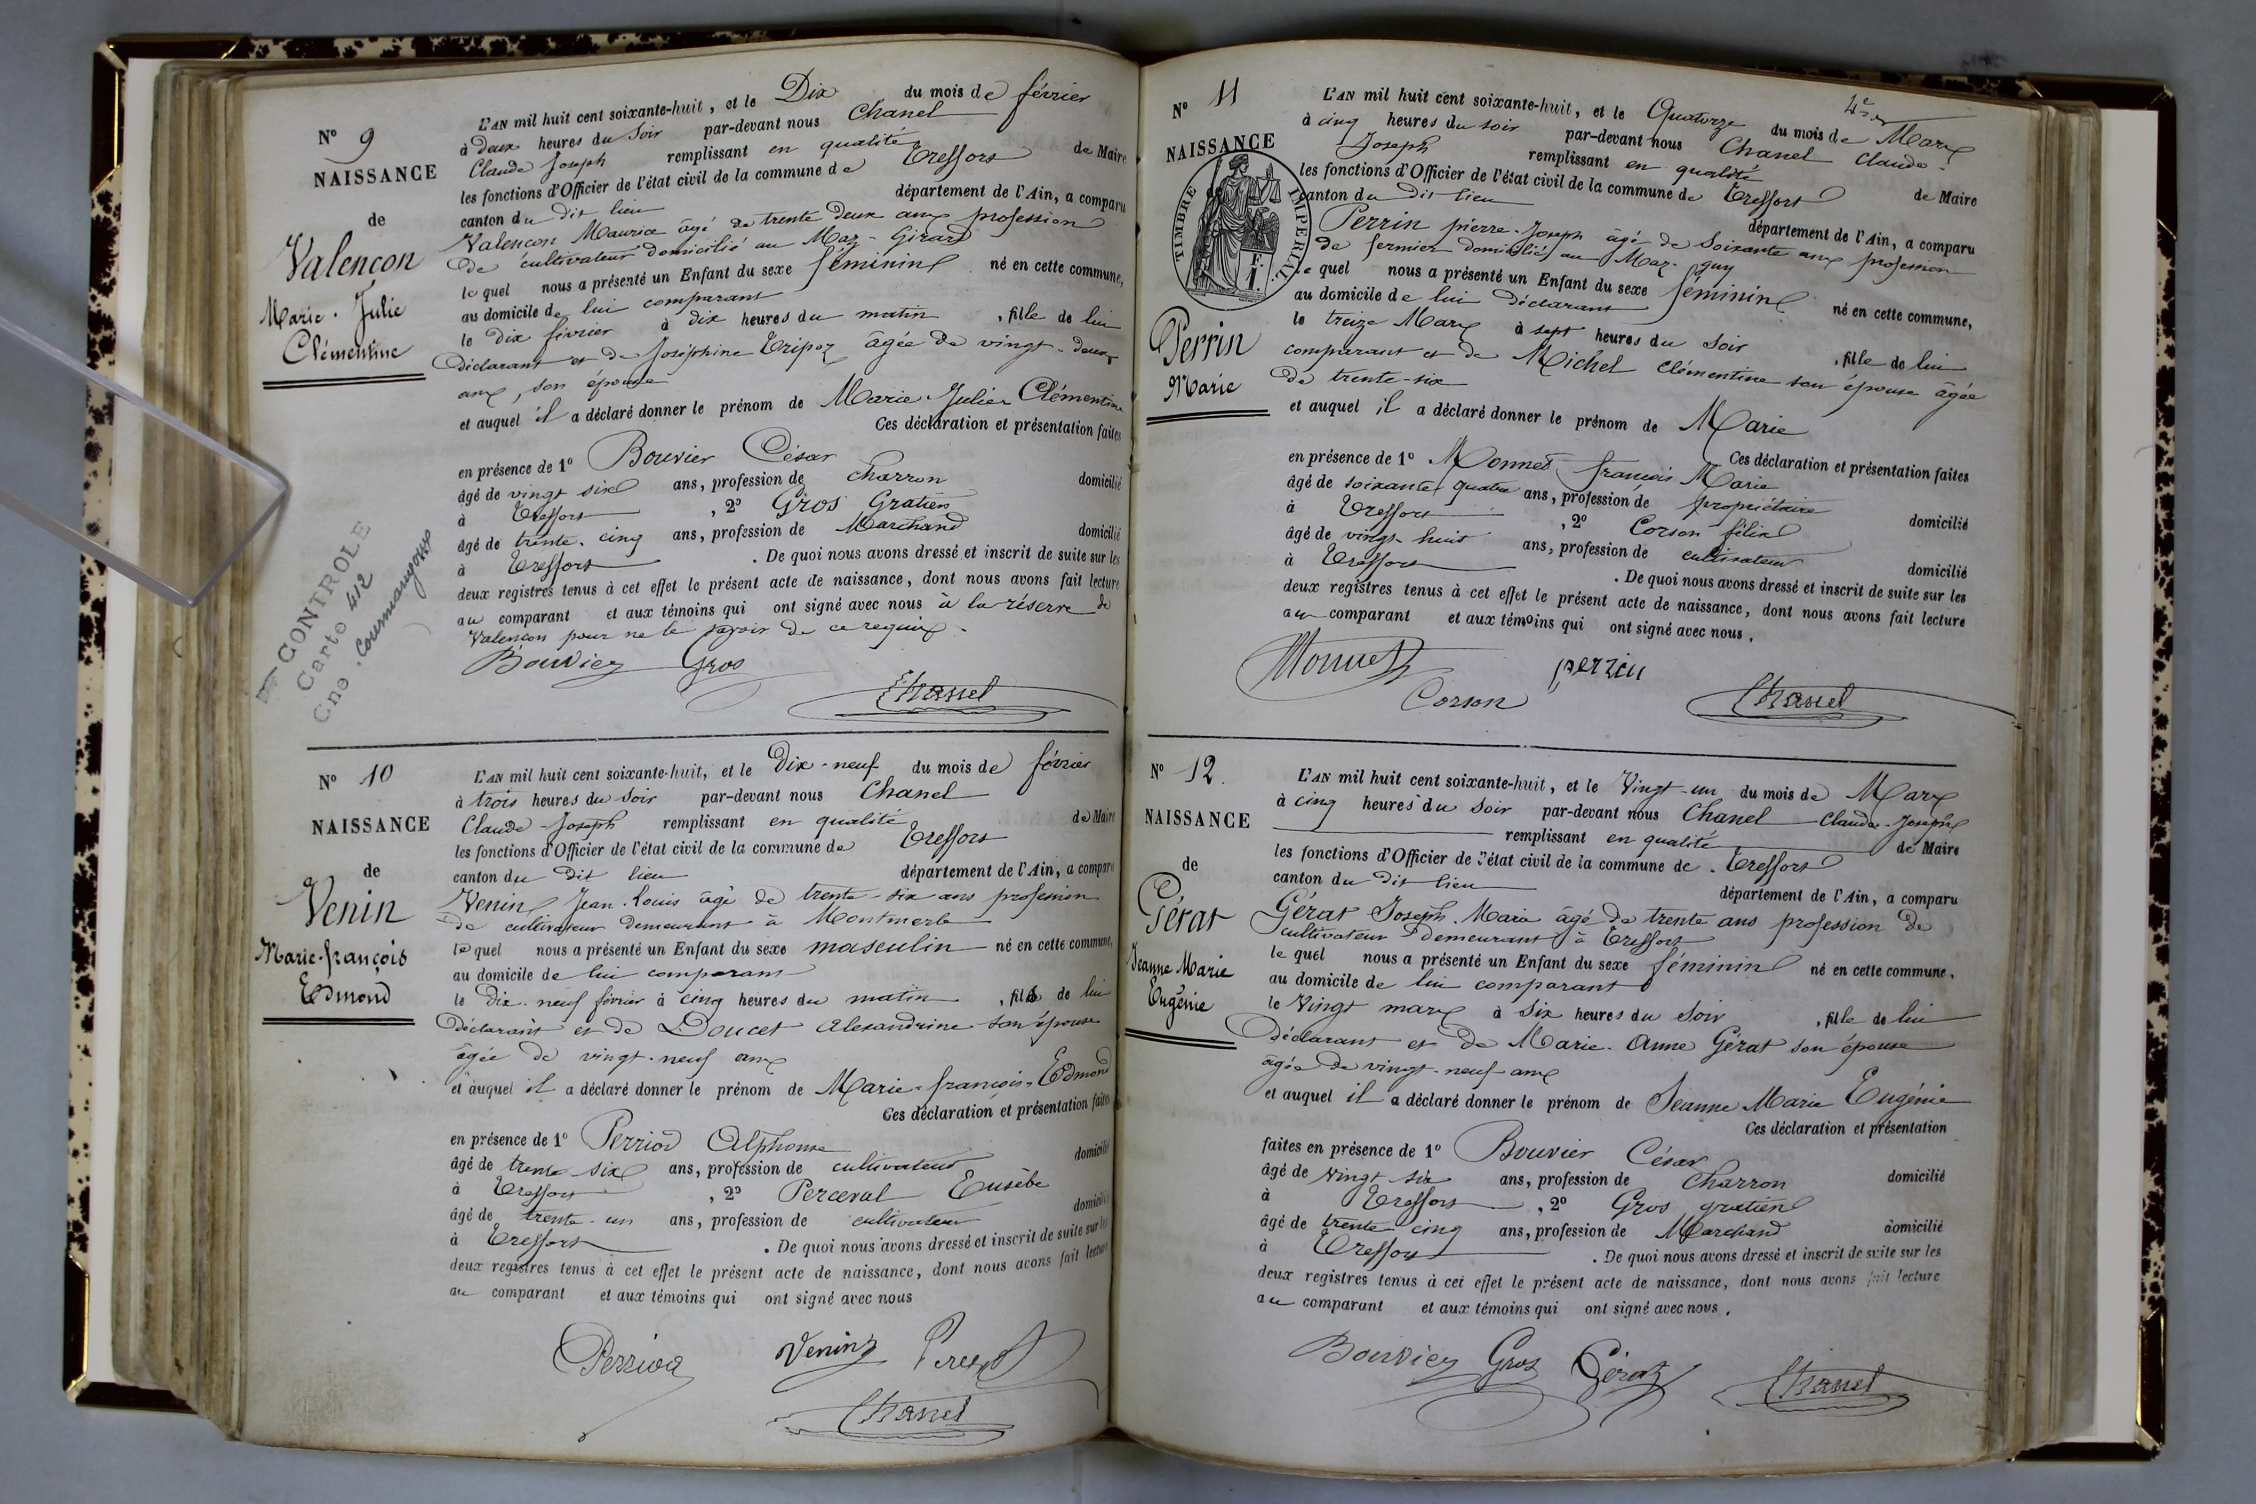 N° 9
NAISSANCE
de
Valençon
Marie. Julie
Clémentine
L'AN mil huit cent soixante-huit, et le Dix du mois de février
à deux heures du soir par-devant nous Chanel
Claude Joseph remplissant en qualité de Maire
les fonctions d'Officier de l'état civil de la commune de Treffort
canton du dit lieu département de l'Ain, a comparu
Valençon Maurice âgé de trente deux ans profession
de cultivateur domicilié au Maz-Girard
le quel nous a présenté un Enfant du sexe féminin né en cette commune,
au domicile de lui comparant
le dix février à dix heures du matin, fille de lui
déclarant et de Joséphine Tripoz âgée de vingt-deux
ans, son épouse
et auquel il a déclaré donner le prénom de Marie Julie Clémentine
Ces déclaration et présentation faites
en présence de 1° Bouvier César
âgé de vingt six ans, profession de charron domicilié
à Treffort, 2° Gros Gratien
âgé de trente-cinq ans, profession de Marchand domicilié
à Treffort. De quoi nous avons dressé et inscrit de suite sur les
deux registres tenus à cet effet le présent acte de naissance, dont nous avons fait lecture
au comparant et aux témoins qui ont signé avec nous à la réserve de
Valencon pour ne le savoir de ce requis.
Bouvier Gros
Chanel
CONTROLE
Carte 412
Cne. Courmangoux
N° 10
NAISSANCE
de
Venin
Marie-françois
Edmond
L'AN mil huit cent soixante-huit, et le Dix-neuf du mois de février
à trois heures du soir par-devant nous Chanel
Claude-Joseph remplissant en qualité de Maire
les fonctions d'Officier de l'état civil de la commune de Treffort
canton du dit lieu département de l'Ain, a comparu
Venin Jean-Louis âgé de trente-six ans profession
de cultivateur demeurant à Montmerle
le quel nous a présenté un Enfant du sexe masculin né en cette commune,
au domicile de lui comparant
le dix-neuf février à cinq heures du matin, fils de lui
déclarant et de Doucet Alexandrine son épouse
âgée de vingt-neuf ans
et auquel il a déclaré donner le prénom de Marie-françois-Edmond
Ces déclaration et présentation faites
en présence de 1° Perriod Alphonse
âgé de trente six ans, profession de cultivateur domicilié
à Treffort, 2° Perceval Eusèbe
âgé de trente-un ans, profession de cultivateur domicilié
à Treffort. De quoi nous avons dressé et inscrit de suite sur les
deux registres tenus à cet effet le présent acte de naissance, dont nous avons fait lecture
au comparant et aux témoins qui ont signé avec nous
Perriod Venin
Chanel
4e
N° 11
NAISSANCE
TIMBRE IMPÉRIAL
Perrin
Marie
L'AN mil huit cent soixante-huit, et le Quatorze du mois de Mars
à cinq heures du soir par-devant nous Chanel Claude
Joseph remplissant en qualité de Maire
les fonctions d'Officier de l'état civil de la commune de Treffort
canton du dit lieu département de l'Ain, a comparu
Perrin pierre-Joseph âgé de soixante ans profession
de fermier domicilié au Maz-guy
le quel nous a présenté un Enfant du sexe féminin né en cette commune,
au domicile de lui déclarant
le treize Mars à sept heures du soir, fille de lui
comparant et de Michel Clémentine son épouse âgée
de trente-six
et auquel il a déclaré donner le prénom de Marie
Ces déclaration et présentation faites
en présence de 1° Monnet françois Marie
âgé de soixante quatre ans, profession de propriétaire domicilié
à Treffort, 2° Corson félix
âgé de vingt-huit ans, profession de cultivateur domicilié
à Treffort. De quoi nous avons dressé et inscrit de suite sur les
deux registres tenus à cet effet le présent acte de naissance, dont nous avons fait lecture
au comparant et aux témoins qui ont signé avec nous.
Monnet perrin
Corson Chanel
N° 12.
NAISSANCE
de
Gérat
Jeanne Marie
Eugénie
L'AN mil huit cent soixante-huit, et le Vingt-un du mois de Mars
à cinq heures du soir par-devant nous Chanel Claude-Joseph
remplissant en qualité de Maire
les fonctions d'Officier de l'état civil de la commune de Treffort
canton du dit lieu département de l'Ain, a comparu
Gérat Joseph-Marie âgé de trente ans profession de
cultivateur demeurant à Treffort
le quel nous a présenté un Enfant du sexe féminin né en cette commune,
au domicile de lui comparant
le Vingt mars à six heures du soir, fille de lui
déclarant et de Marie-Anne Gérat son épouse
âgée de vingt-neuf ans
et auquel il a déclaré donner le prénom de Jeanne Marie Eugénie
Ces déclaration et présentation
faites en présence de 1° Bouvier César
âgé de vingt six ans, profession de Charron domicilié
à Treffort, 2° Gros gratien
âgé de trente cinq ans, profession de Marchand domicilié
à Treffort. De quoi nous avons dressé et inscrit de suite sur les
deux registres tenus à cet effet le présent acte de naissance, dont nous avons fait lecture
au comparant et aux témoins qui ont signé avec nous.
Bouvier Gros Gérat
Chanel